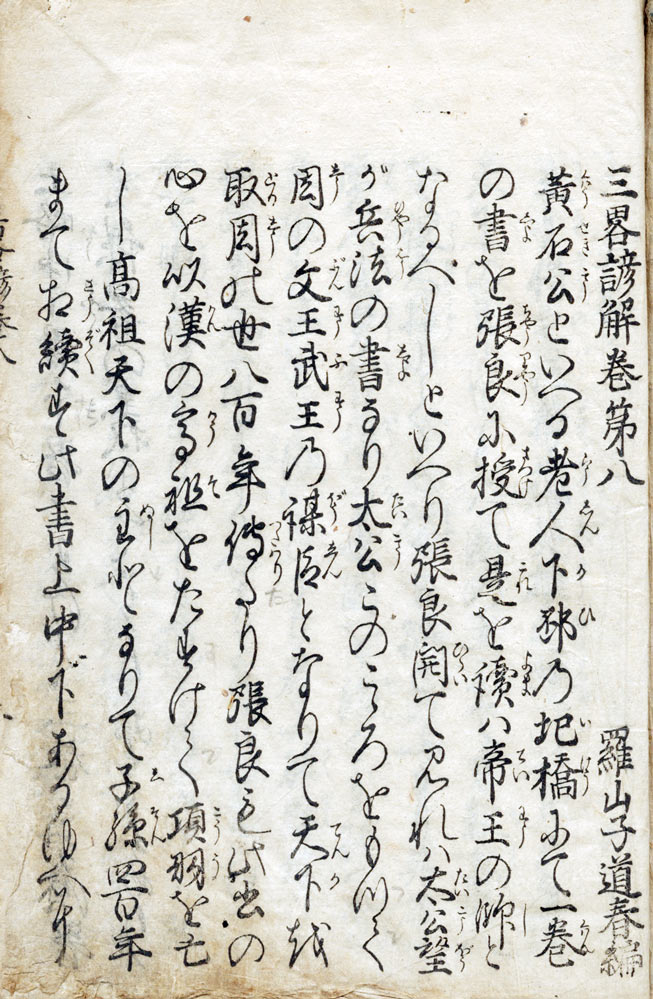 三畧諺解巻第八　羅山子道春編
黄石公といへる老人下邳の圯橋にて一巻
の書を張良に授て是を讀ハ帝王の師と
なるべしといへり張良開て見れハ太公望
が兵法の書なり太公このこゝろをもつて
周の文王武王乃謀臣となりて天下を
取周の世八百年傳たり張良も此書の
心を以漢の高祖をたすけて項羽を亡
し高祖天下の主となりて子孫四百年
まて相續す此書上中下あるゆへ